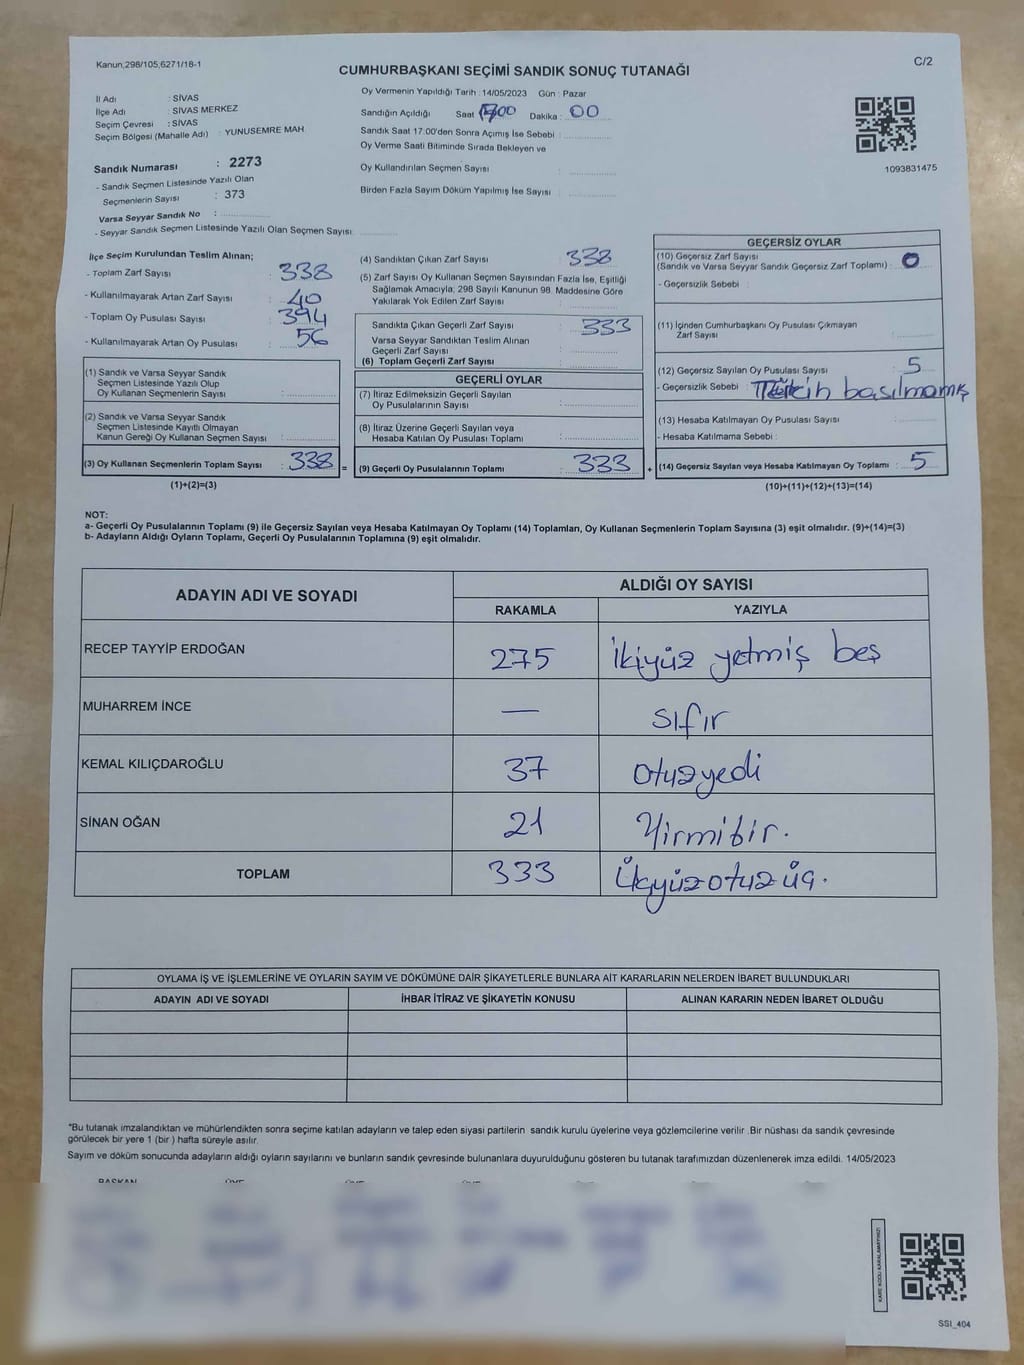 Kanun;298/105,6271/18-1
C/2
CUMHURBAŞKANI SEÇİMİ SANDIK SONUÇ TUTANAĞI
İl Adı : SİVAS
İlçe Adı : SİVAS MERKEZ
Seçim Çevresi : SİVAS
Seçim Bölgesi (Mahalle Adı) : YUNUSEMRE MAH
Sandık Numarası : 2273
- Sandık Seçmen Listesinde Yazılı Olan
Seçmenlerin Sayısı : 373
Varsa Seyyar Sandık No :
- Seyyar Sandık Seçmen Listesinde Yazılı Olan Seçmen Sayısı:
Oy Vermenin Yapıldığı Tarih : 14/05/2023 Gün : Pazar
Sandığın Açıldığı Saat 1700 Dakika : 00
Sandık Saat 17.00'den Sonra Açımış İse Sebebi :
Oy Verme Saati Bitiminde Sırada Bekleyen ve
Oy Kullandırılan Seçmen Sayısı :
Birden Fazla Sayım Döküm Yapılmış İse Sayısı :
1093831475
İlçe Seçim Kurulundan Teslim Alınan;
- Toplam Zarf Sayısı : 338
- Kullanılmayarak Artan Zarf Sayısı : 40
- Toplam Oy Pusulası Sayısı : 394
- Kullanılmayarak Artan Oy Pusulası : 56
(1) Sandık ve Varsa Seyyar Sandık
Seçmen Listesinde Yazılı Olup
Oy Kullanan Seçmen Sayısı :
(2) Sandık ve Varsa Seyyar Sandık
Seçmen Listesinde Kayıtlı Olmayan
Kanun Gereği Oy Kullanan Seçmen Sayısı :
(3) Oy Kullanan Seçmenlerin Toplam Sayısı : 338 =
(1)+(2)=(3)
(4) Sandıktan Çıkan Zarf Sayısı : 338
(5) Zarf Sayısı Oy Kullanan Seçmen Sayısından Fazla İse, Eşitliği
Sağlamak Amacıyla; 298 Sayılı Kanunun 98. Maddesine Göre
Yakılarak Yok Edilen Zarf Sayısı :
Sandıkta Çıkan Geçerli Zarf Sayısı : 333
Varsa Seyyar Sandıktan Teslim Alınan
Geçerli Zarf Sayısı :
(6) Toplam Geçerli Zarf Sayısı :
GEÇERLİ OYLAR
(7) İtiraz Edilmeksizin Geçerli Sayılan
Oy Pusulalarının Sayısı :
(8) İtiraz Üzerine Geçerli Sayılan veya
Hesaba Katılan Oy Pusulası Toplamı :
(9) Geçerli Oy Pusulalarının Toplamı : 333 +
GEÇERSİZ OYLAR
(10) Geçersiz Zarf Sayısı
(Sandık ve Varsa Seyyar Sandık Geçersiz Zarf Toplamı) : 0
- Geçersizlik Sebebi :
(11) İçinden Cumhurbaşkanı Oy Pusulası Çıkmayan
Zarf Sayısı :
(12) Geçersiz Sayılan Oy Pusulası Sayısı : 5
- Geçersizlik Sebebi : Tercih basılmamış
(13) Hesaba Katılmayan Oy Pusulası Sayısı :
- Hesaba Katılmama Sebebi :
(14) Geçersiz Sayılan veya Hesaba Katılmayan Oy Toplamı : 5
(10)+(11)+(12)+(13)=(14)
NOT:
a- Geçerli Oy Pusulalarının Toplamı (9) ile Geçersiz Sayılan veya Hesaba Katılmayan Oy Toplamı (14) Toplamları, Oy Kullanan Seçmenlerin Toplam Sayısına (3) eşit olmalıdır. (9)+(14)=(3)
b- Adayların Aldığı Oyların Toplamı, Geçerli Oy Pusulalarının Toplamına (9) eşit olmalıdır.
ADAYIN ADI VE SOYADI ALDIĞI OY SAYISI
RAKAMLA YAZIYLA
RECEP TAYYİP ERDOĞAN 275 ikiyüz yetmiş beş
MUHARREM İNCE — sıfır
KEMAL KILIÇDAROĞLU 37 otuzyedi
SİNAN OĞAN 21 Yirmibir.
TOPLAM 333 Üçyüzotuzüç.
OYLAMA İŞ VE İŞLEMLERİNE VE OYLARIN SAYIM VE DÖKÜMÜNE DAİR ŞİKAYETLERLE BUNLARA AİT KARARLARIN NELERDEN İBARET BULUNDUKLARI
ADAYIN ADI VE SOYADI İHBAR İTİRAZ VE ŞİKAYETİN KONUSU ALINAN KARARIN NEDEN İBARET OLDUĞU
*Bu tutanak imzalandıktan ve mühürlendikten sonra seçime katılan adayların ve talep eden siyasi partilerin sandık kurulu üyelerine veya gözlemcilerine verilir .Bir nüshası da sandık çevresinde
görülecek bir yere 1 (bir ) hafta süreyle asılır.
Sayım ve döküm sonucunda adayların aldığı oyların sayılarını ve bunların sandık çevresinde bulunanlara duyurulduğunu gösteren bu tutanak tarafımızdan düzenlenerek imza edildi. 14/05/2023
BAŞKAN ÜYE
KARE KODU KARALAMAYINIZ!
SSI_404